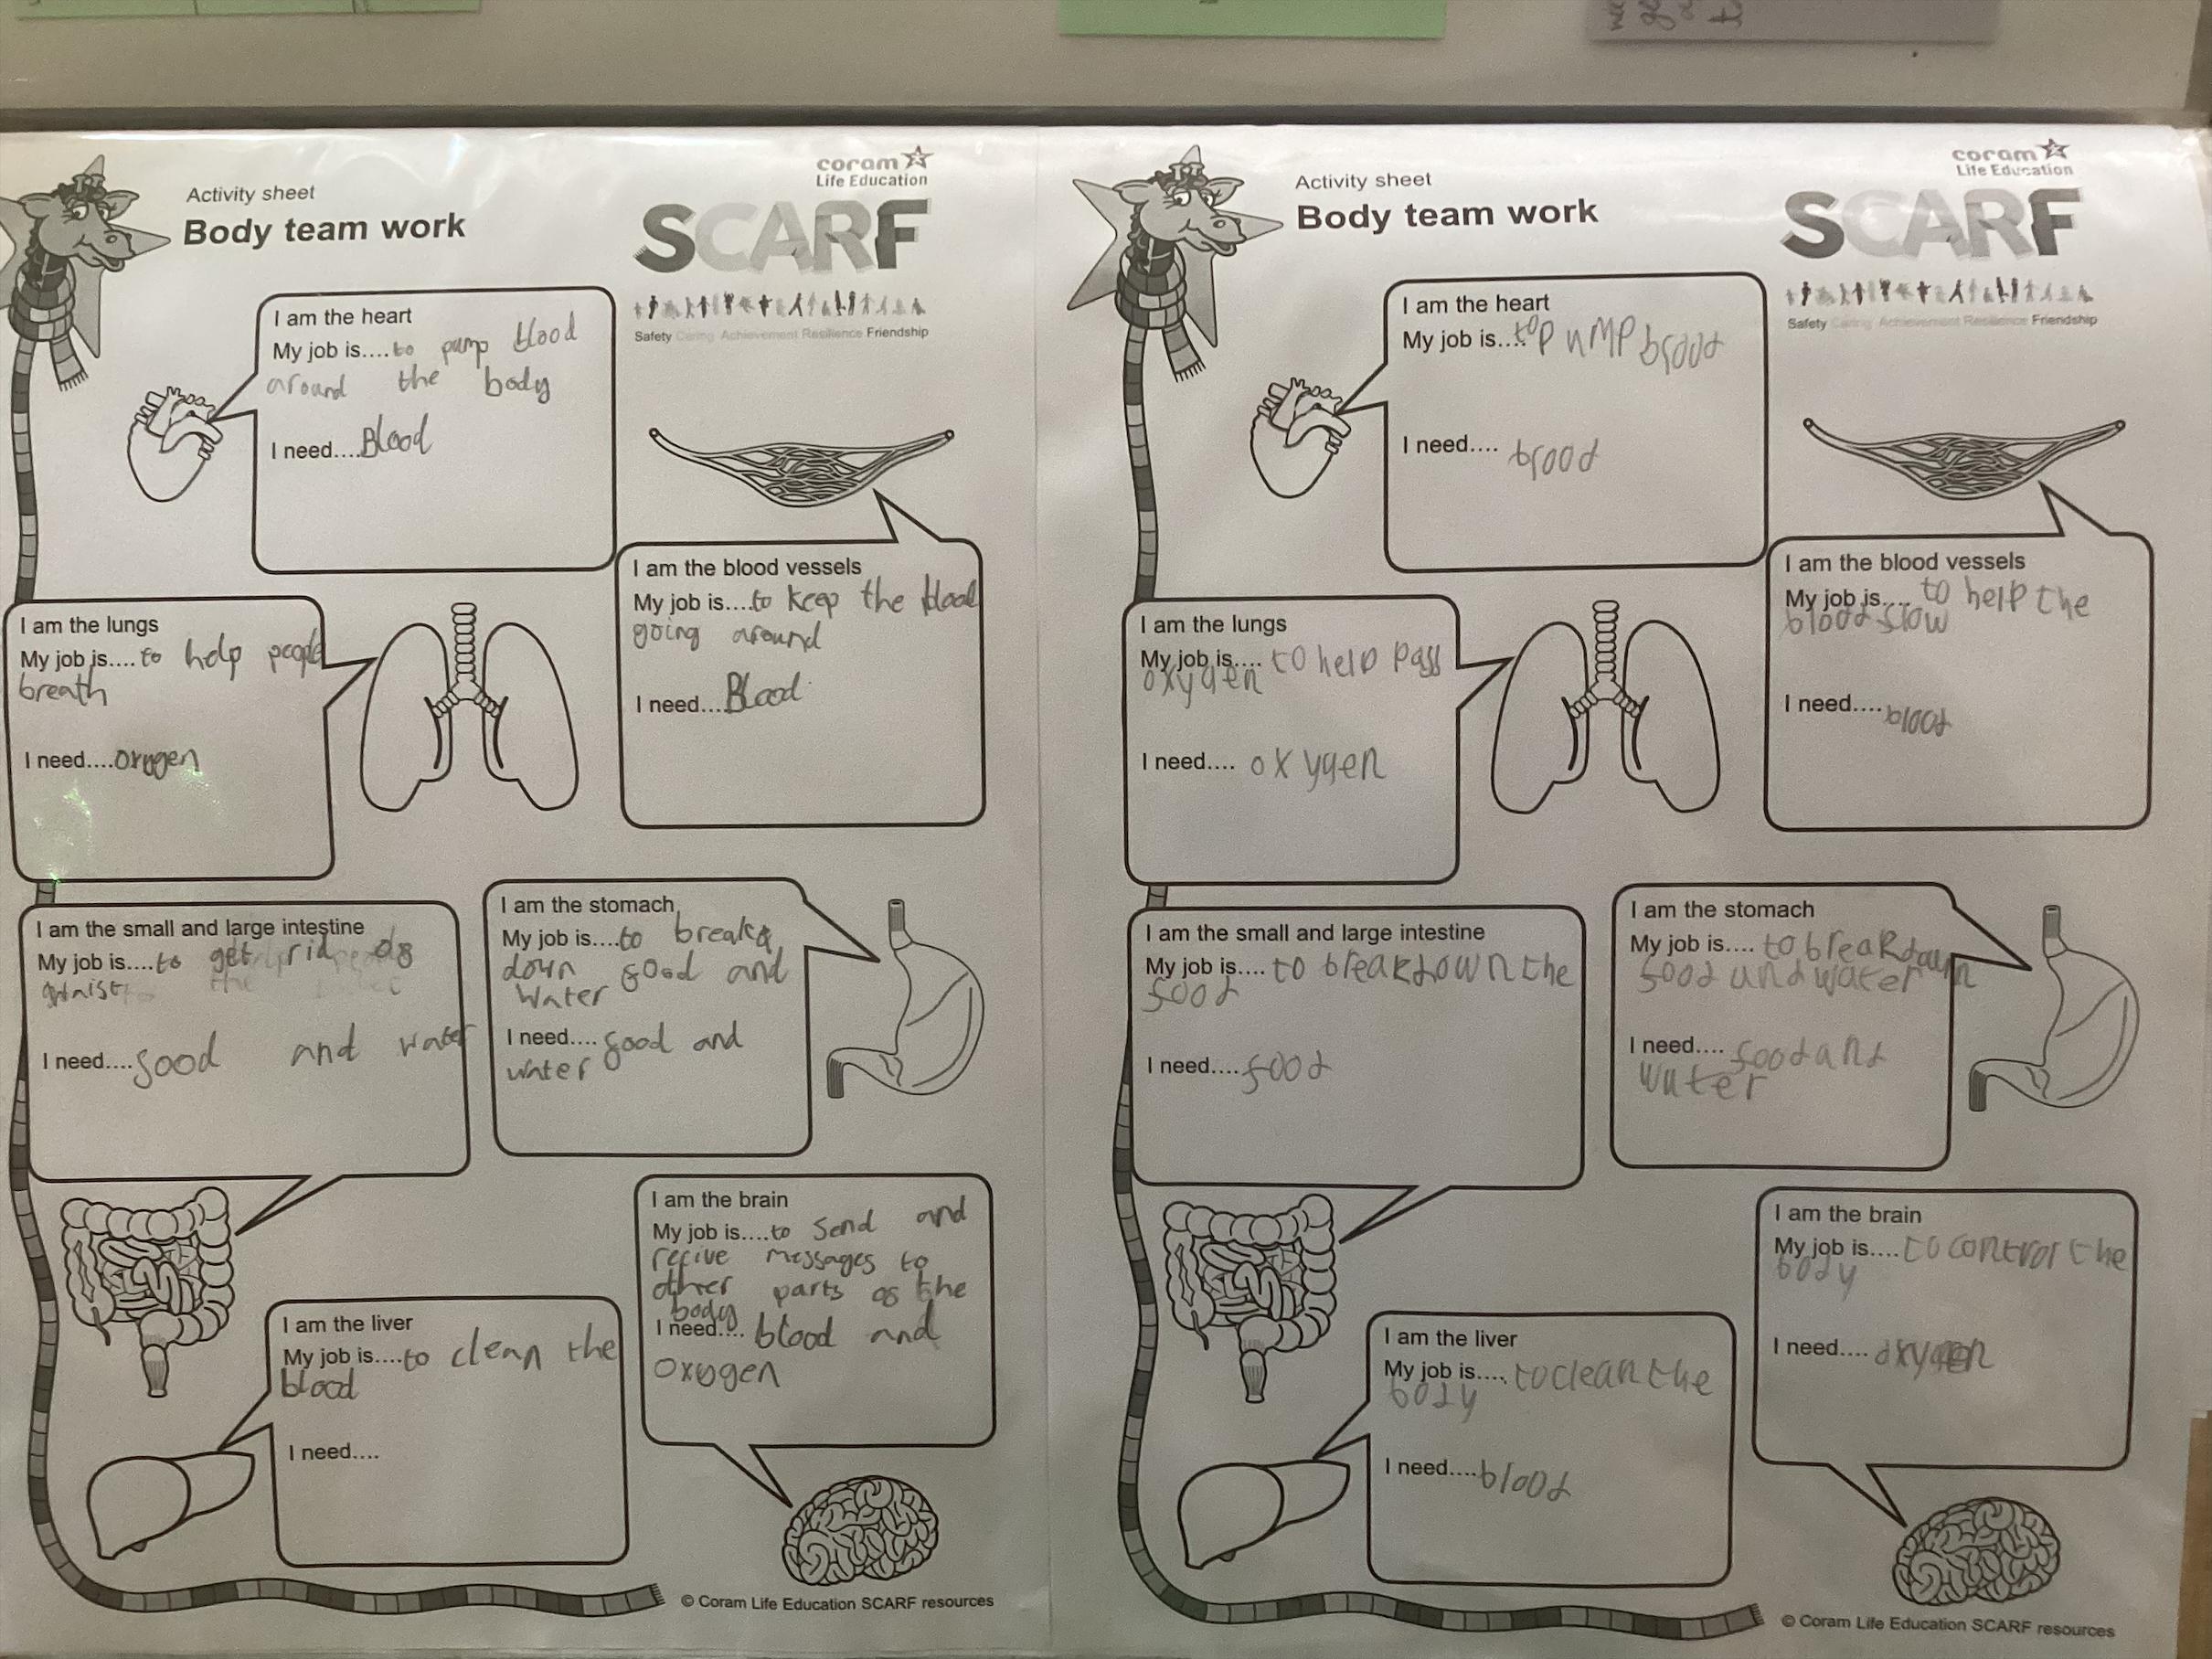 coram
Life Education
Activity sheet
Body team work
SCARF
Safety Caring Achievement Resilience Friendship
I am the heart
My job is....to pump blood
around the body
I need....Blood
I am the blood vessels
My job is....to keep the blood
going around
I need....Blood
I am the lungs
My job is....to help people
breath
I need....oxygen
I am the small and large intestine
My job is....to get rid of
waist
I need....food and water
I am the stomach
My job is....to break
down food and
water
I need....food and
water
I am the brain
My job is....to send and
recive messages to
other parts of the
body
I need.... blood and
oxygen
I am the liver
My job is....to clean the
blood
I need....
© Coram Life Education SCARF resources
coram
Life Education
Activity sheet
Body team work
SCARF
Safety Caring Achievement Resilience Friendship
I am the heart
My job is....to pump blood
I need.... blood
I am the blood vessels
My job is.... to help the
blood flow
I need....blood
I am the lungs
My job is.... to help pass
oxygen
I need.... oxygen
I am the small and large intestine
My job is.... to break down the
food
I need....food
I am the stomach
My job is.... to break down
food and water
I need.... food and
water
I am the brain
My job is.... to control the
body
I need.... oxygen
I am the liver
My job is.... to clean the
body
I need....blood
© Coram Life Education SCARF resources